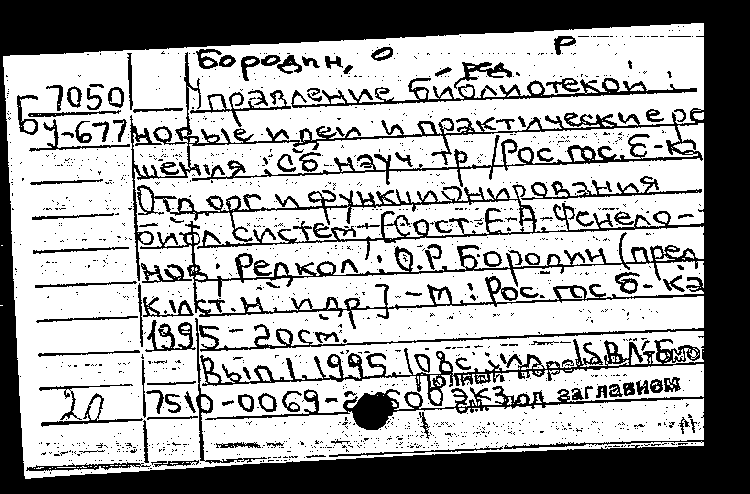 Бородин, О Р
– ред.
7050 Управление библиотекой :
Б У-677 новые идеи и практические ре
шения : Сб. науч. тр. / Рос. гос. б-ка,
Отд. орг. и функционирования
библ. систем; [Сост. Е. А. Фенело-
нов; Редкол.: О.Р. Бородин (пред
к.ист.н. и др.]. – М.: Рос. гос. б-ка
1995. – 20см.
Вып. 1. 1995. 108с.: ил. ISBN 5
20 7510-0069- 600экз
Полный перечень томов
см. под заглавием